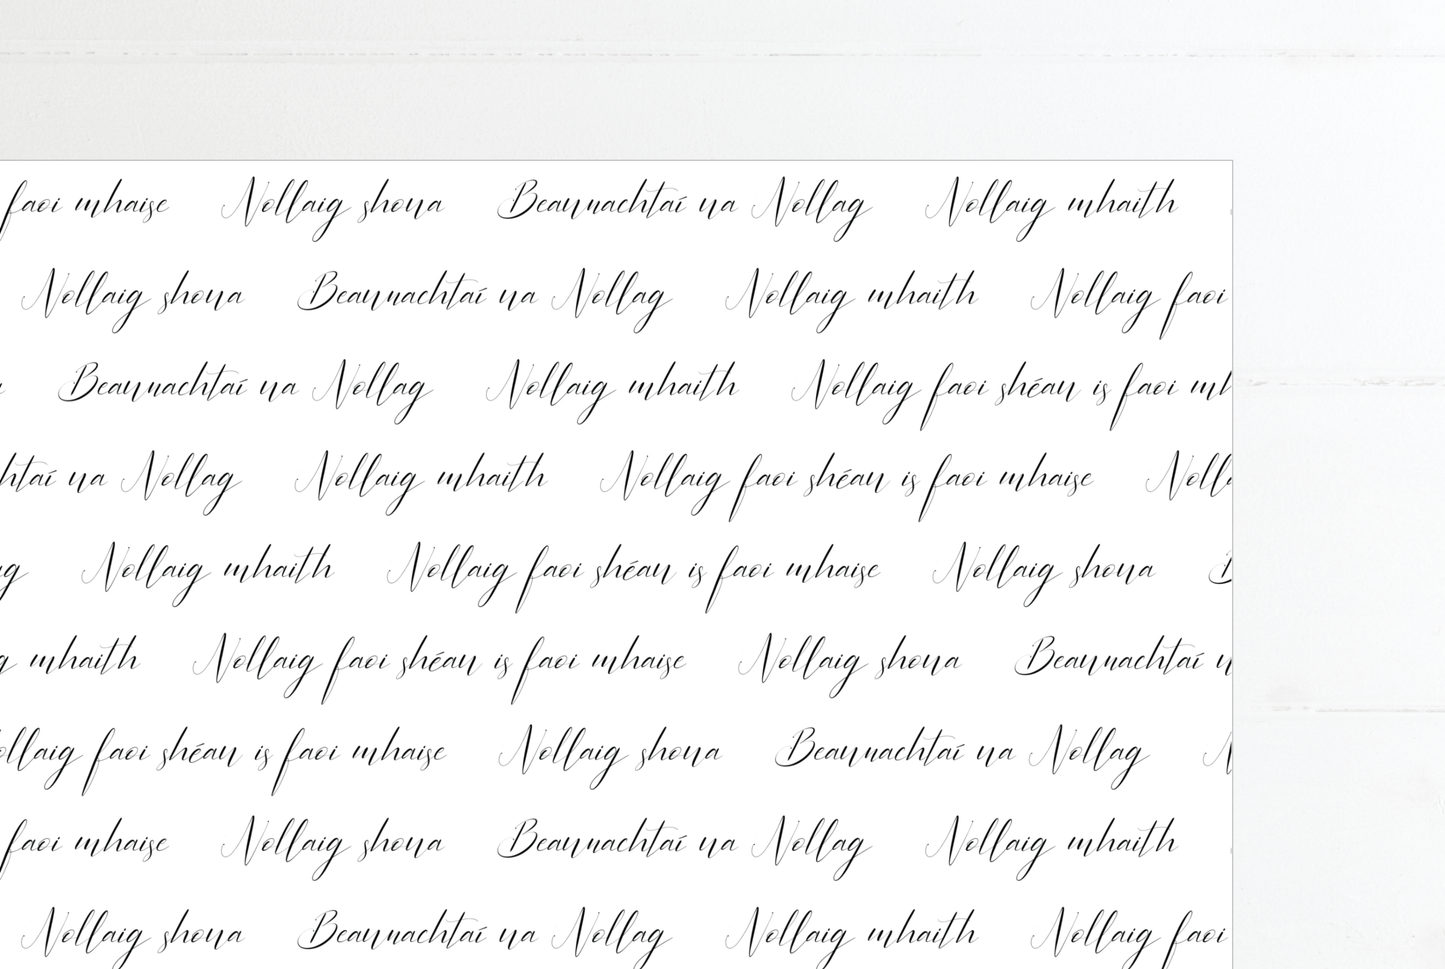 faoi mhaise Nollaig shona Beannachtaí na Nollag Nollaig mhaith
Nollaig shona Beannachtaí na Nollag Nollaig mhaith Nollaig faoi
Beannachtaí na Nollag Nollaig mhaith Nollaig faoi shéan is faoi mh
htaí na Nollag Nollaig mhaith Nollaig faoi shéan is faoi mhaise Nolla
g Nollaig mhaith Nollaig faoi shéan is faoi mhaise Nollaig shona B
g mhaith Nollaig faoi shéan is faoi mhaise Nollaig shona Beannachtaí n
ollaig faoi shéan is faoi mhaise Nollaig shona Beannachtaí na Nollag N
faoi mhaise Nollaig shona Beannachtaí na Nollag Nollaig mhaith
Nollaig shona Beannachtaí na Nollag Nollaig mhaith Nollaig faoi